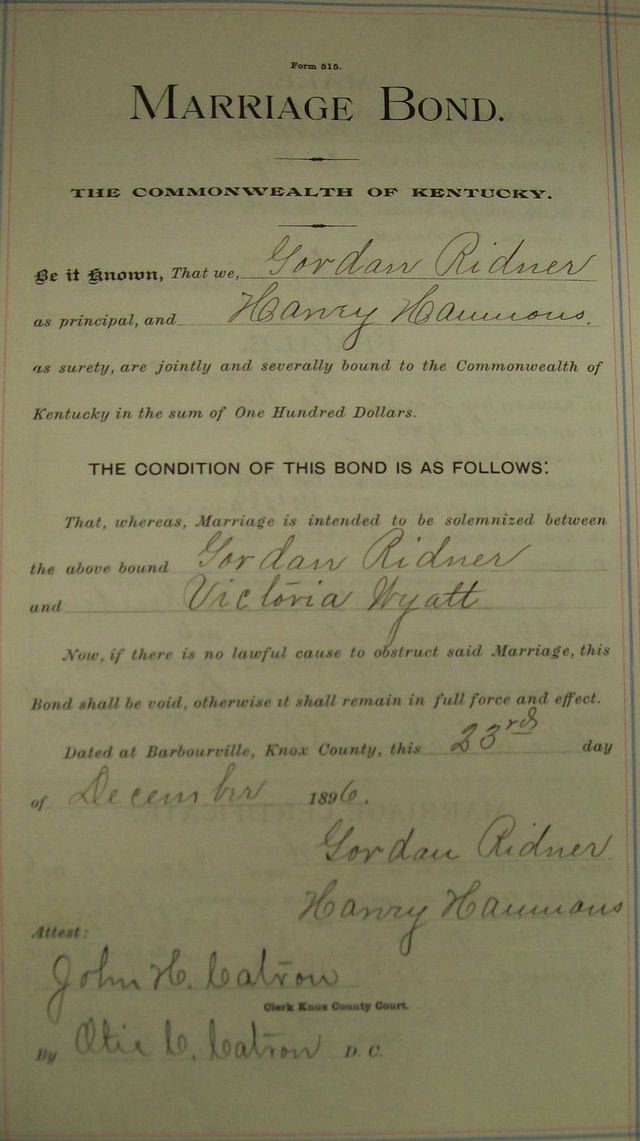 Form 515.
MARRIAGE BOND.
THE COMMONWEALTH OF KENTUCKY.
Be it Known, That we, Gordan Ridner
as principal, and Hanry Hammons.
as surety, are jointly and severally bound to the Commonwealth of
Kentucky in the sum of One Hundred Dollars.
THE CONDITION OF THIS BOND IS AS FOLLOWS:
That, whereas, Marriage is intended to be solemnized between
the above bound Gordan Ridner
and Victoria Wyatt
Now, if there is no lawful cause to obstruct said Marriage, this
Bond shall be void, otherwise it shall remain in full force and effect.
Dated at Barbourville, Knox County, this 23rd day
of December 1896.
Gordan Ridner
Hanry Hammons
Attest:
John H. Catron
Clerk Knox County Court.
By Otis C. Catron D. C.